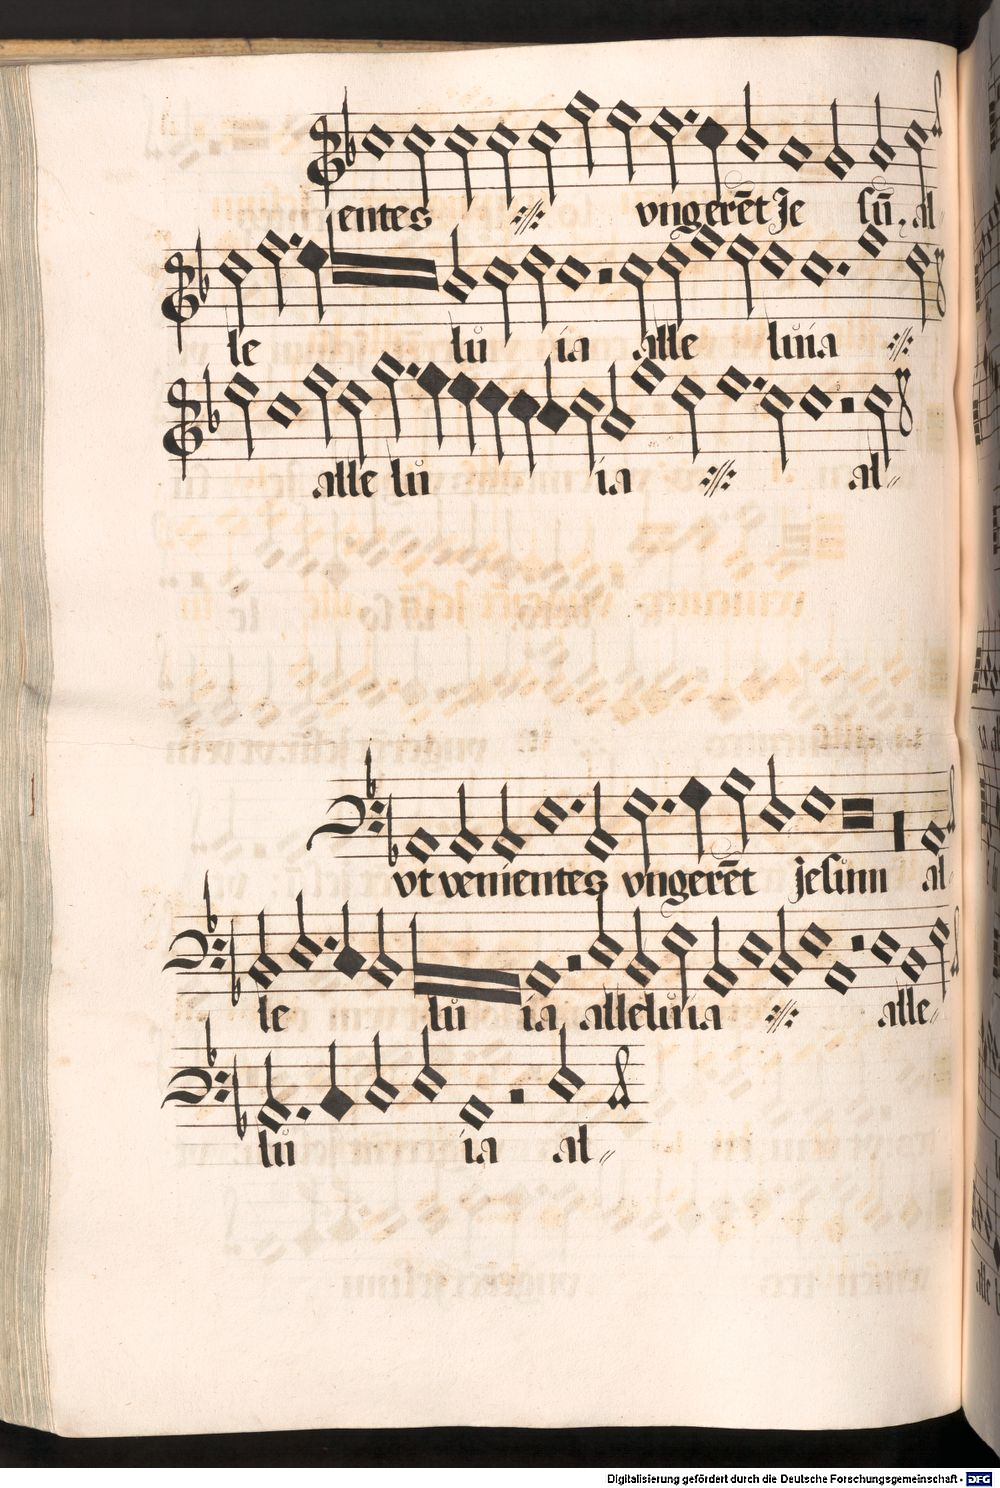 entes ·//· vngerēt Je sū. al
le lu ia alle luia ·//·
alle lu ia ·//· al〃
vt venientes vngerēt Jesum al
le lu ia alleluia ·//· alle〃
lu ia al〃
Digitalisierung gefördert durch die Deutsche Forschungsgemeinschaft - DFG